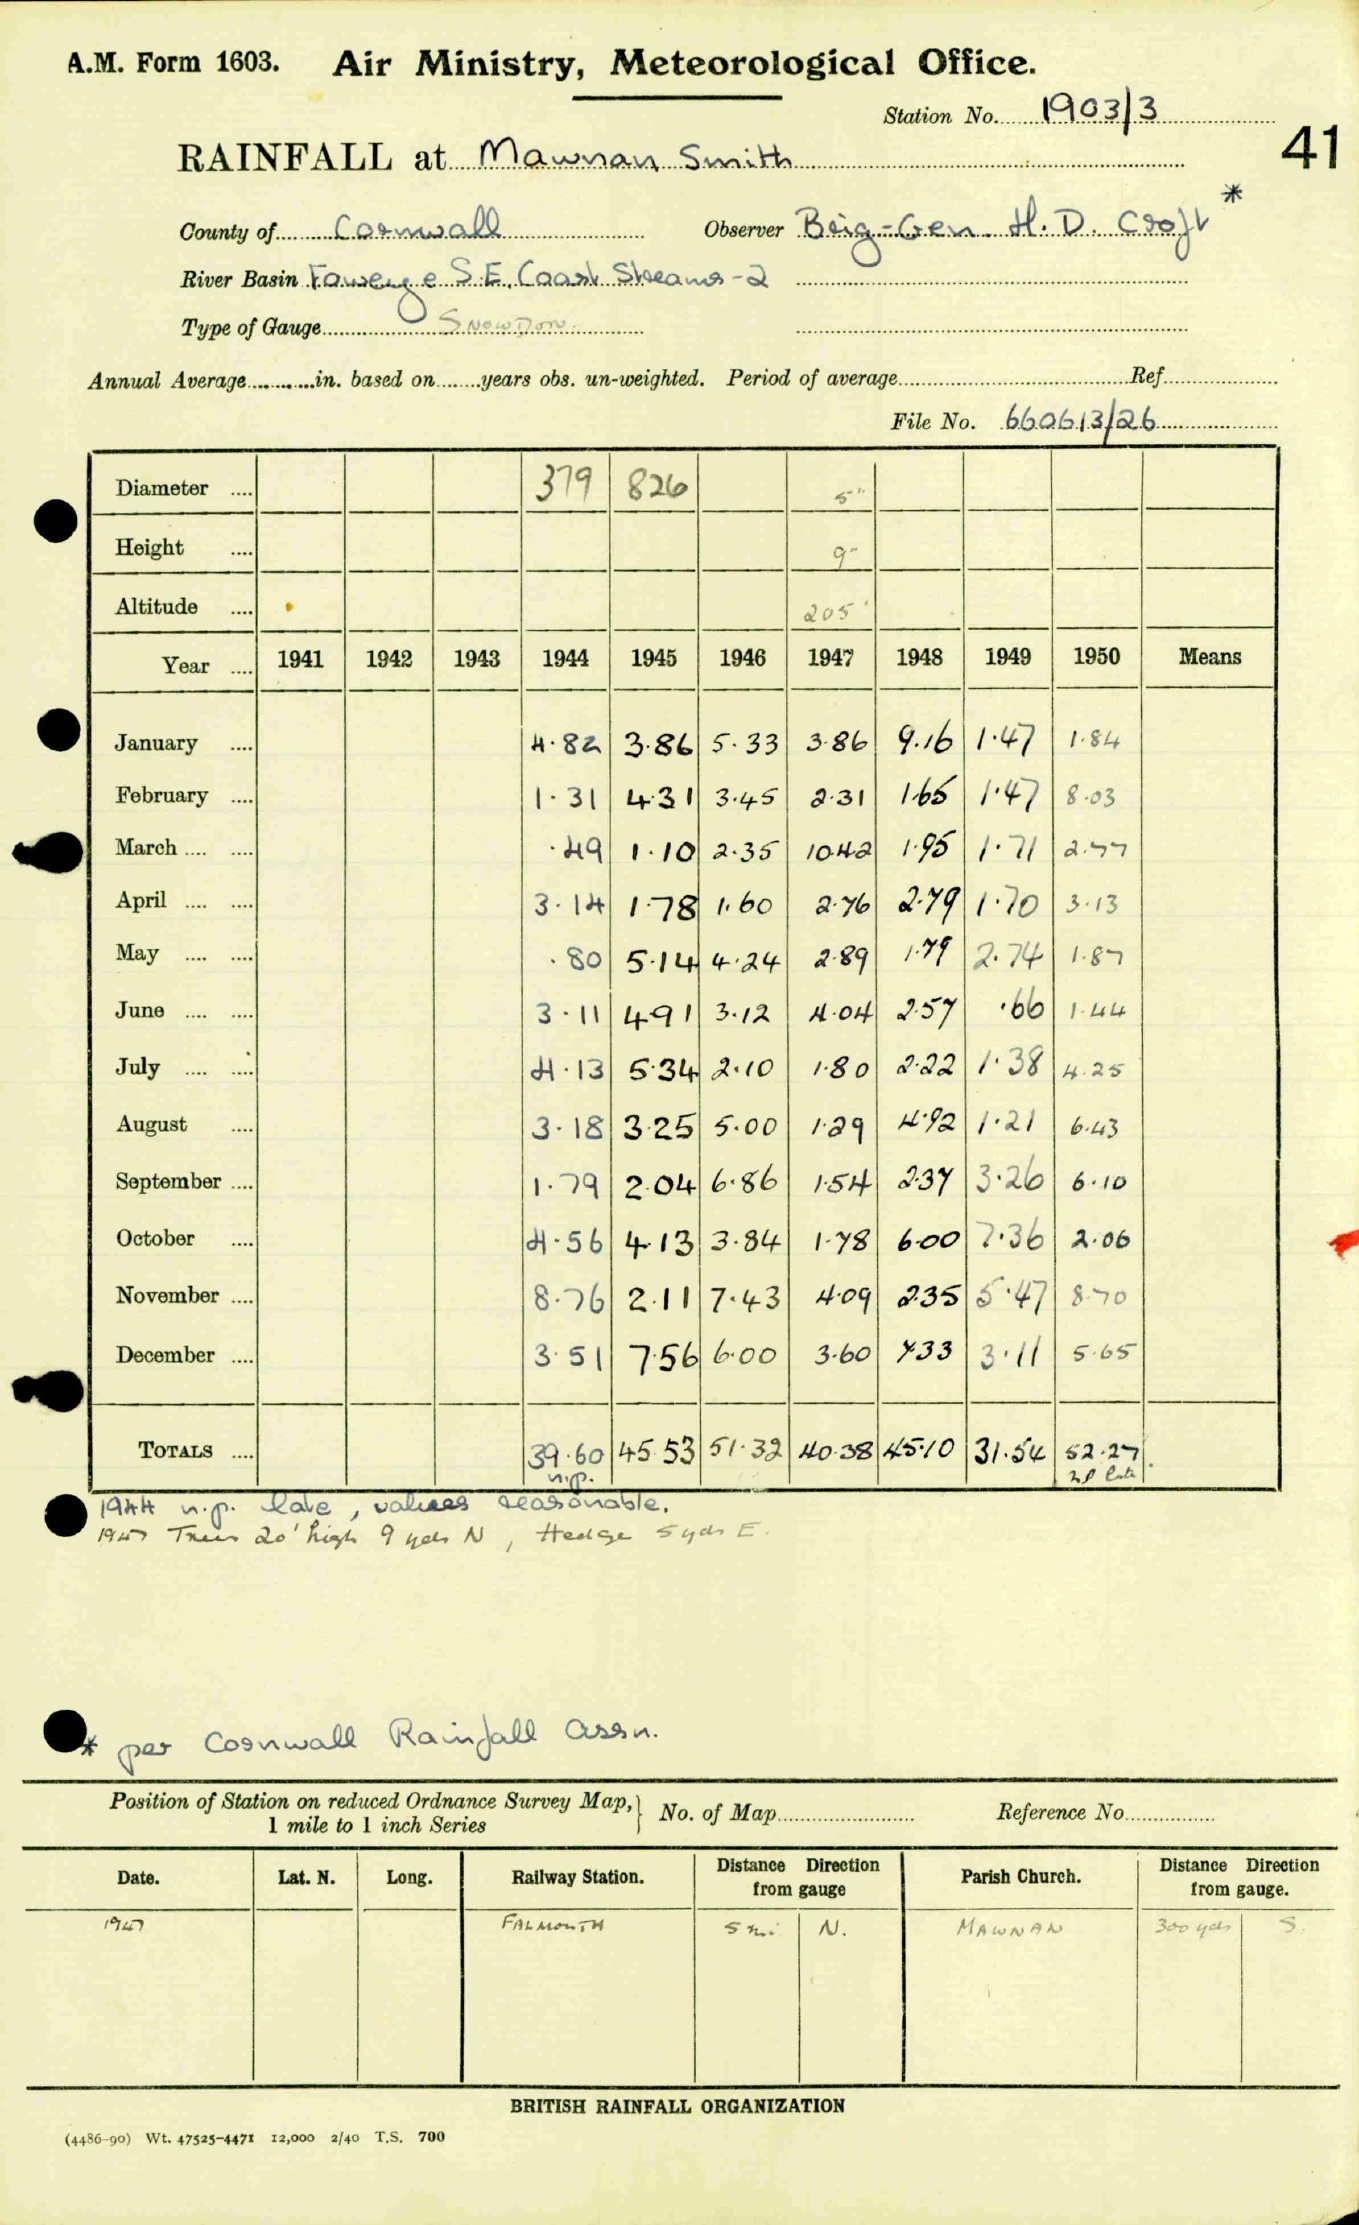 A.M. Form 1603. Air Ministry, Meteorological Office.
Station No. 1903/3
41
RAINFALL at Mawnan Smith
County of Cornwall Observer Brig-Gen. H. D. Croft *
River Basin Fowey & S.E. Coast Streams - 2
Type of Gauge Snowdon.
Annual Average in. based on years obs. un-weighted. Period of average Ref
File No. 660613/26
Diameter 379 826 5"
Height 9"
Altitude 205'
Year 1941 1942 1943 1944 1945 1946 1947 1948 1949 1950 Means
January 4.82 3.86 5.33 3.86 9.16 1.47 1.84
February 1.31 4.31 3.45 2.31 1.65 1.47 8.03
March .49 1.10 2.35 10.42 1.95 1.71 2.77
April 3.14 1.78 1.60 2.76 2.79 1.70 3.13
May .80 5.14 4.24 2.89 1.79 2.74 1.87
June 3.11 4.91 3.12 4.04 2.57 .66 1.44
July 4.13 5.34 2.10 1.80 2.22 1.38 4.25
August 3.18 3.25 5.00 1.29 4.92 1.21 6.43
September 1.79 2.04 6.86 1.54 2.37 3.26 6.10
October 4.56 4.13 3.84 1.78 6.00 7.36 2.06
November 8.76 2.11 7.43 4.09 2.35 5.47 8.70
December 3.51 7.56 6.00 3.60 7.33 3.11 5.65
TOTALS 39.60 45.53 51.32 40.38 45.10 31.54 52.27
n.p. late
1944 n.p. late, values reasonable.
1947 Trees 20' high 9 yds N, Hedge 5 yds E.
* per Cornwall Rainfall Assn.
Position of Station on reduced Ordnance Survey Map, } No. of Map Reference No
1 mile to 1 inch Series
Date. Lat. N. Long. Railway Station. Distance Direction from gauge Parish Church. Distance Direction from gauge.
1947 FALMOUTH 5 mi N. MAWNAN 300 yds S.
BRITISH RAINFALL ORGANIZATION
(4486-90) Wt. 47525-4471 12,000 2/40 T.S. 700